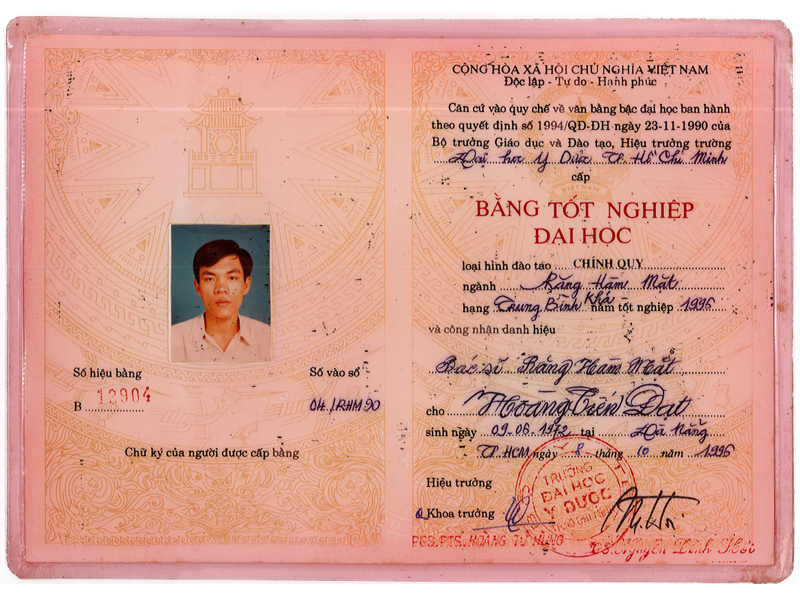 Số hiệu bằng
B 12904
Số vào sổ
04/RHM90
Chữ ký của người được cấp bằng
CỘNG HÒA XÃ HỘI CHỦ NGHĨA VIỆT NAM
Độc lập - Tự do - Hạnh phúc
Căn cứ vào quy chế về văn bằng bậc đại học ban hành
theo quyết định số 1994/QĐ-ĐH ngày 23-11-1990 của
Bộ trưởng Giáo dục và Đào tạo, Hiệu trưởng trường
Đại học Y Dược TP. Hồ Chí Minh
cấp
BẰNG TỐT NGHIỆP
ĐẠI HỌC
loại hình đào tạo CHÍNH QUY
ngành Răng Hàm Mặt
hạng Trung Bình Khá năm tốt nghiệp 1996
và công nhận danh hiệu
Bác sĩ Răng Hàm Mặt
cho Hoàng Tiến Đạt
sinh ngày 09.06.1972 tại Đà Nẵng
TP. HCM ngày 8 tháng 10 năm 1996
Hiệu trưởng
Khoa trưởng
TRƯỜNG
ĐẠI HỌC
Y DƯỢC
PGS.PTS. HOÀNG TỬ HÙNG